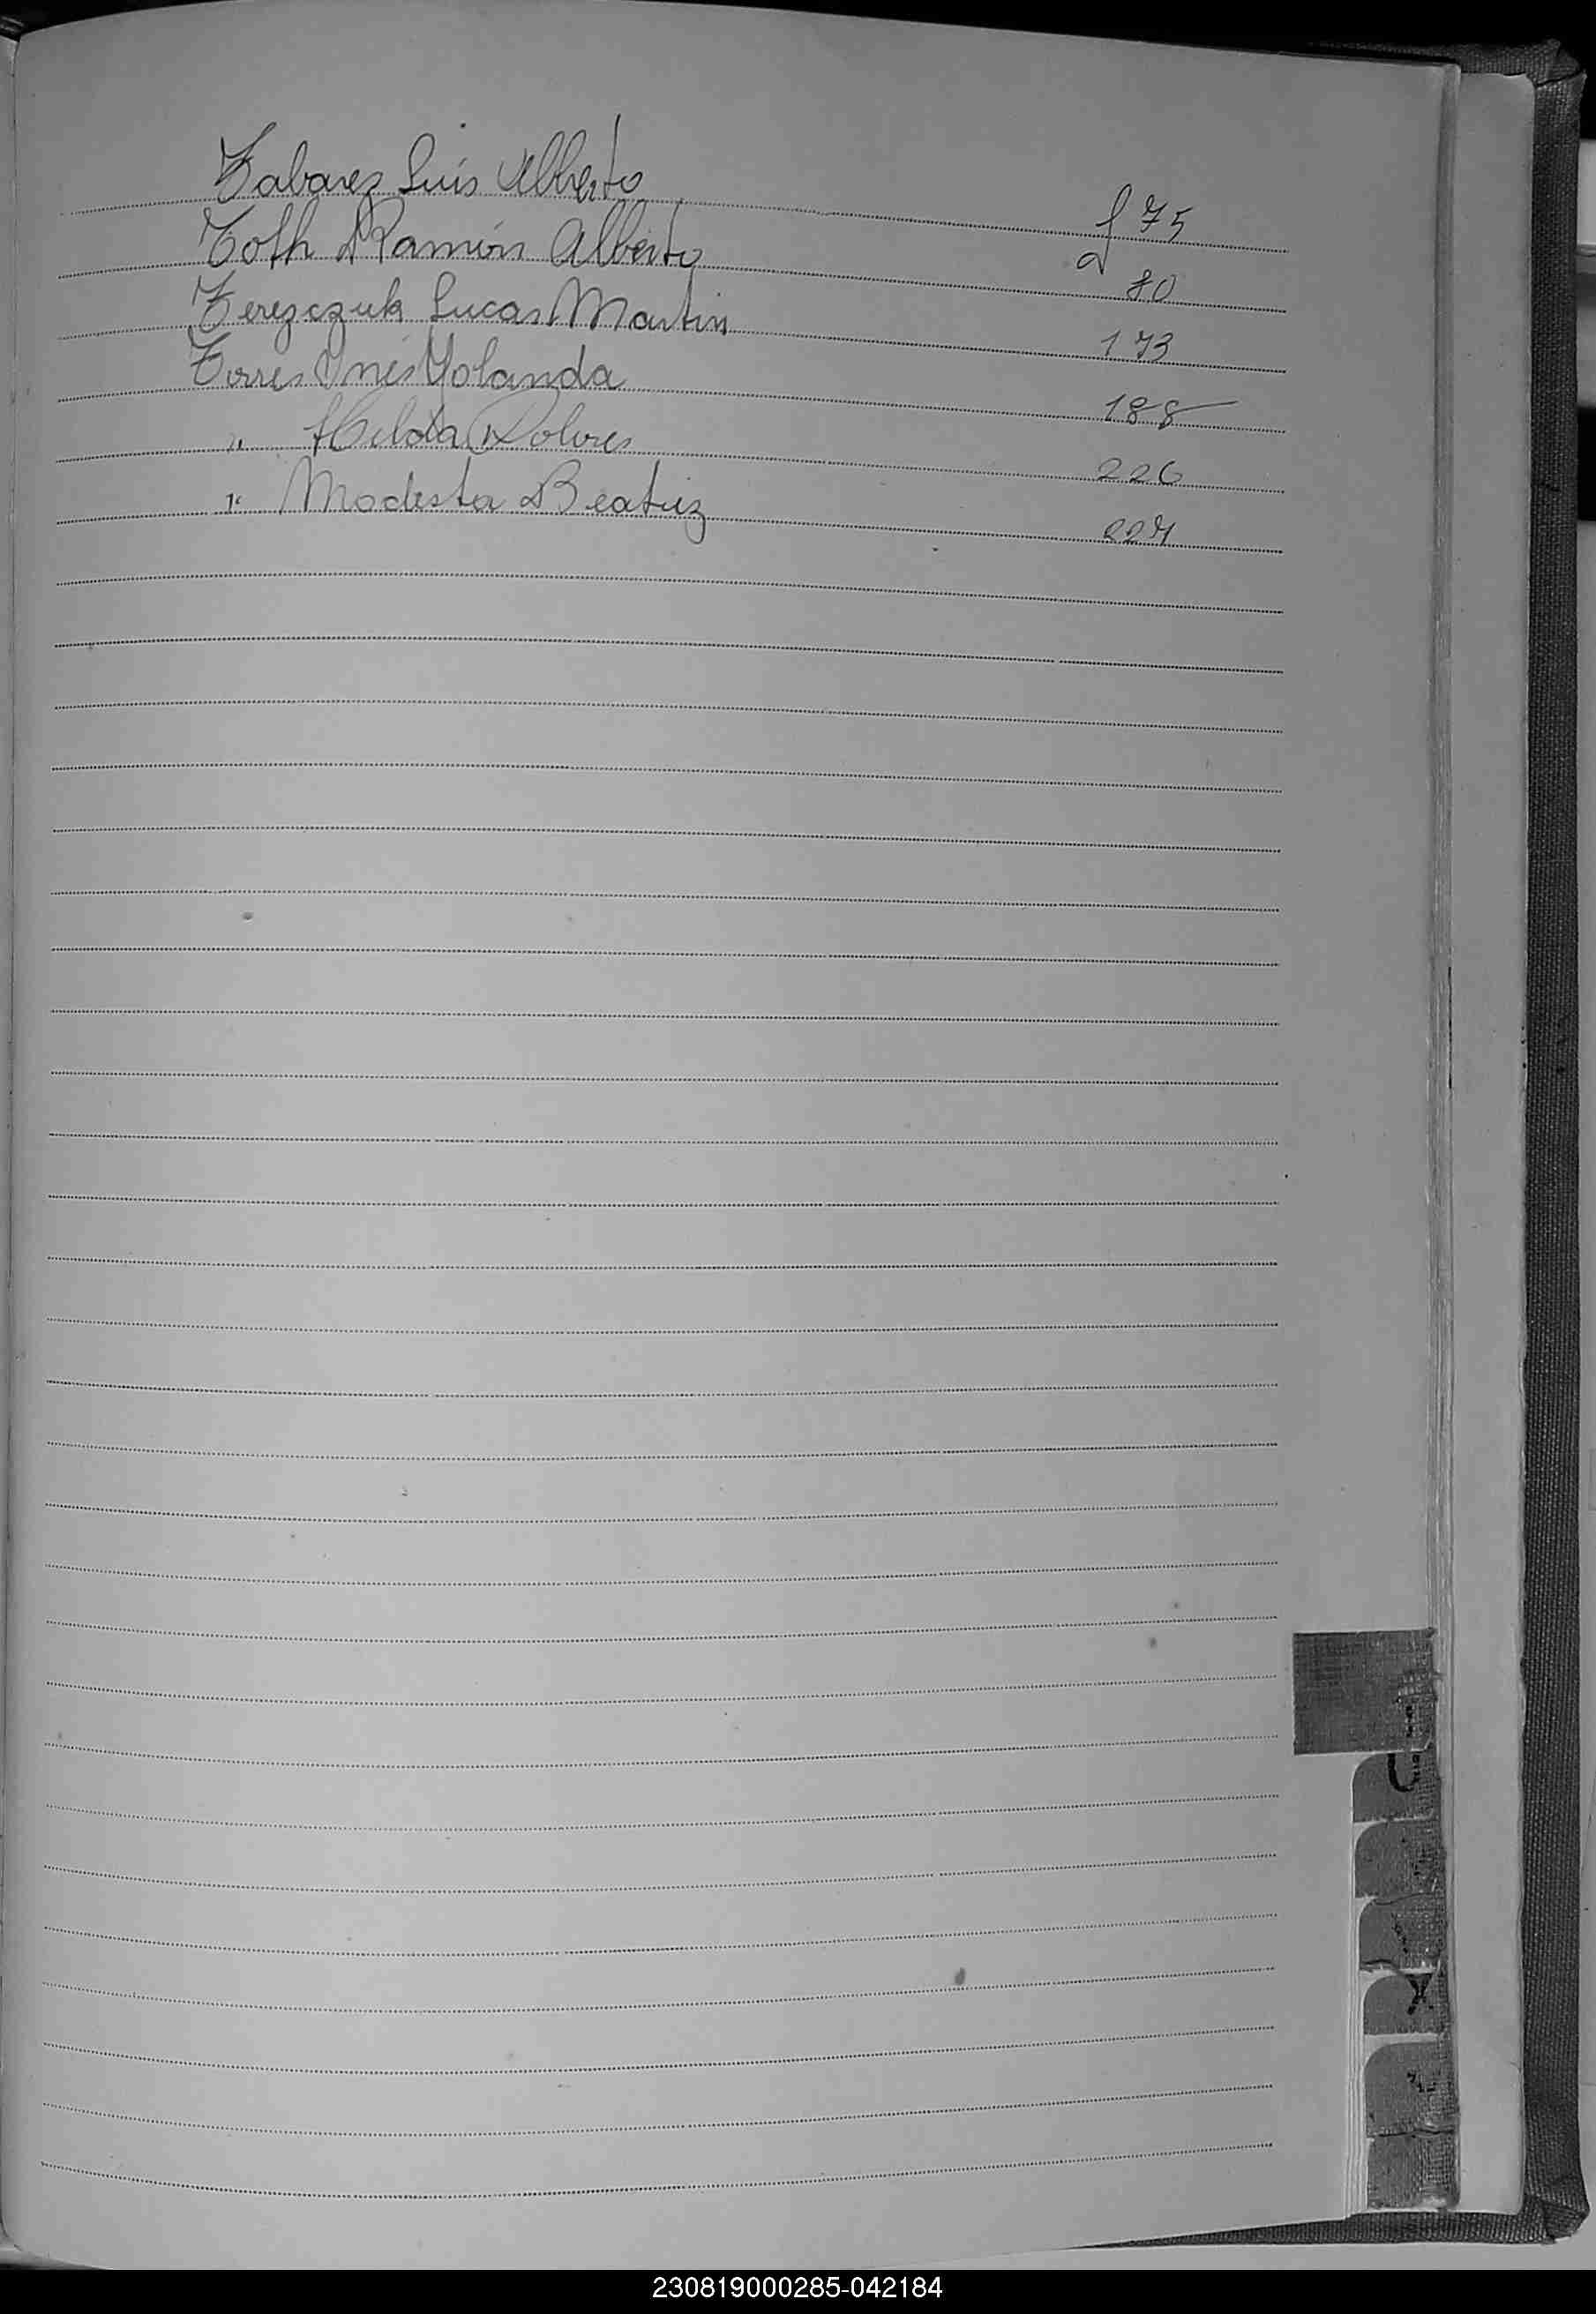 Tabarez Luis Alberto f 75
Toth Ramón Alberto 80
Terezczuk Lucas Martin 173
Torres Inés Yolanda 188
" Hilda Dolores 226
" Modesta Beatriz 227
U
X
230819000285-042184